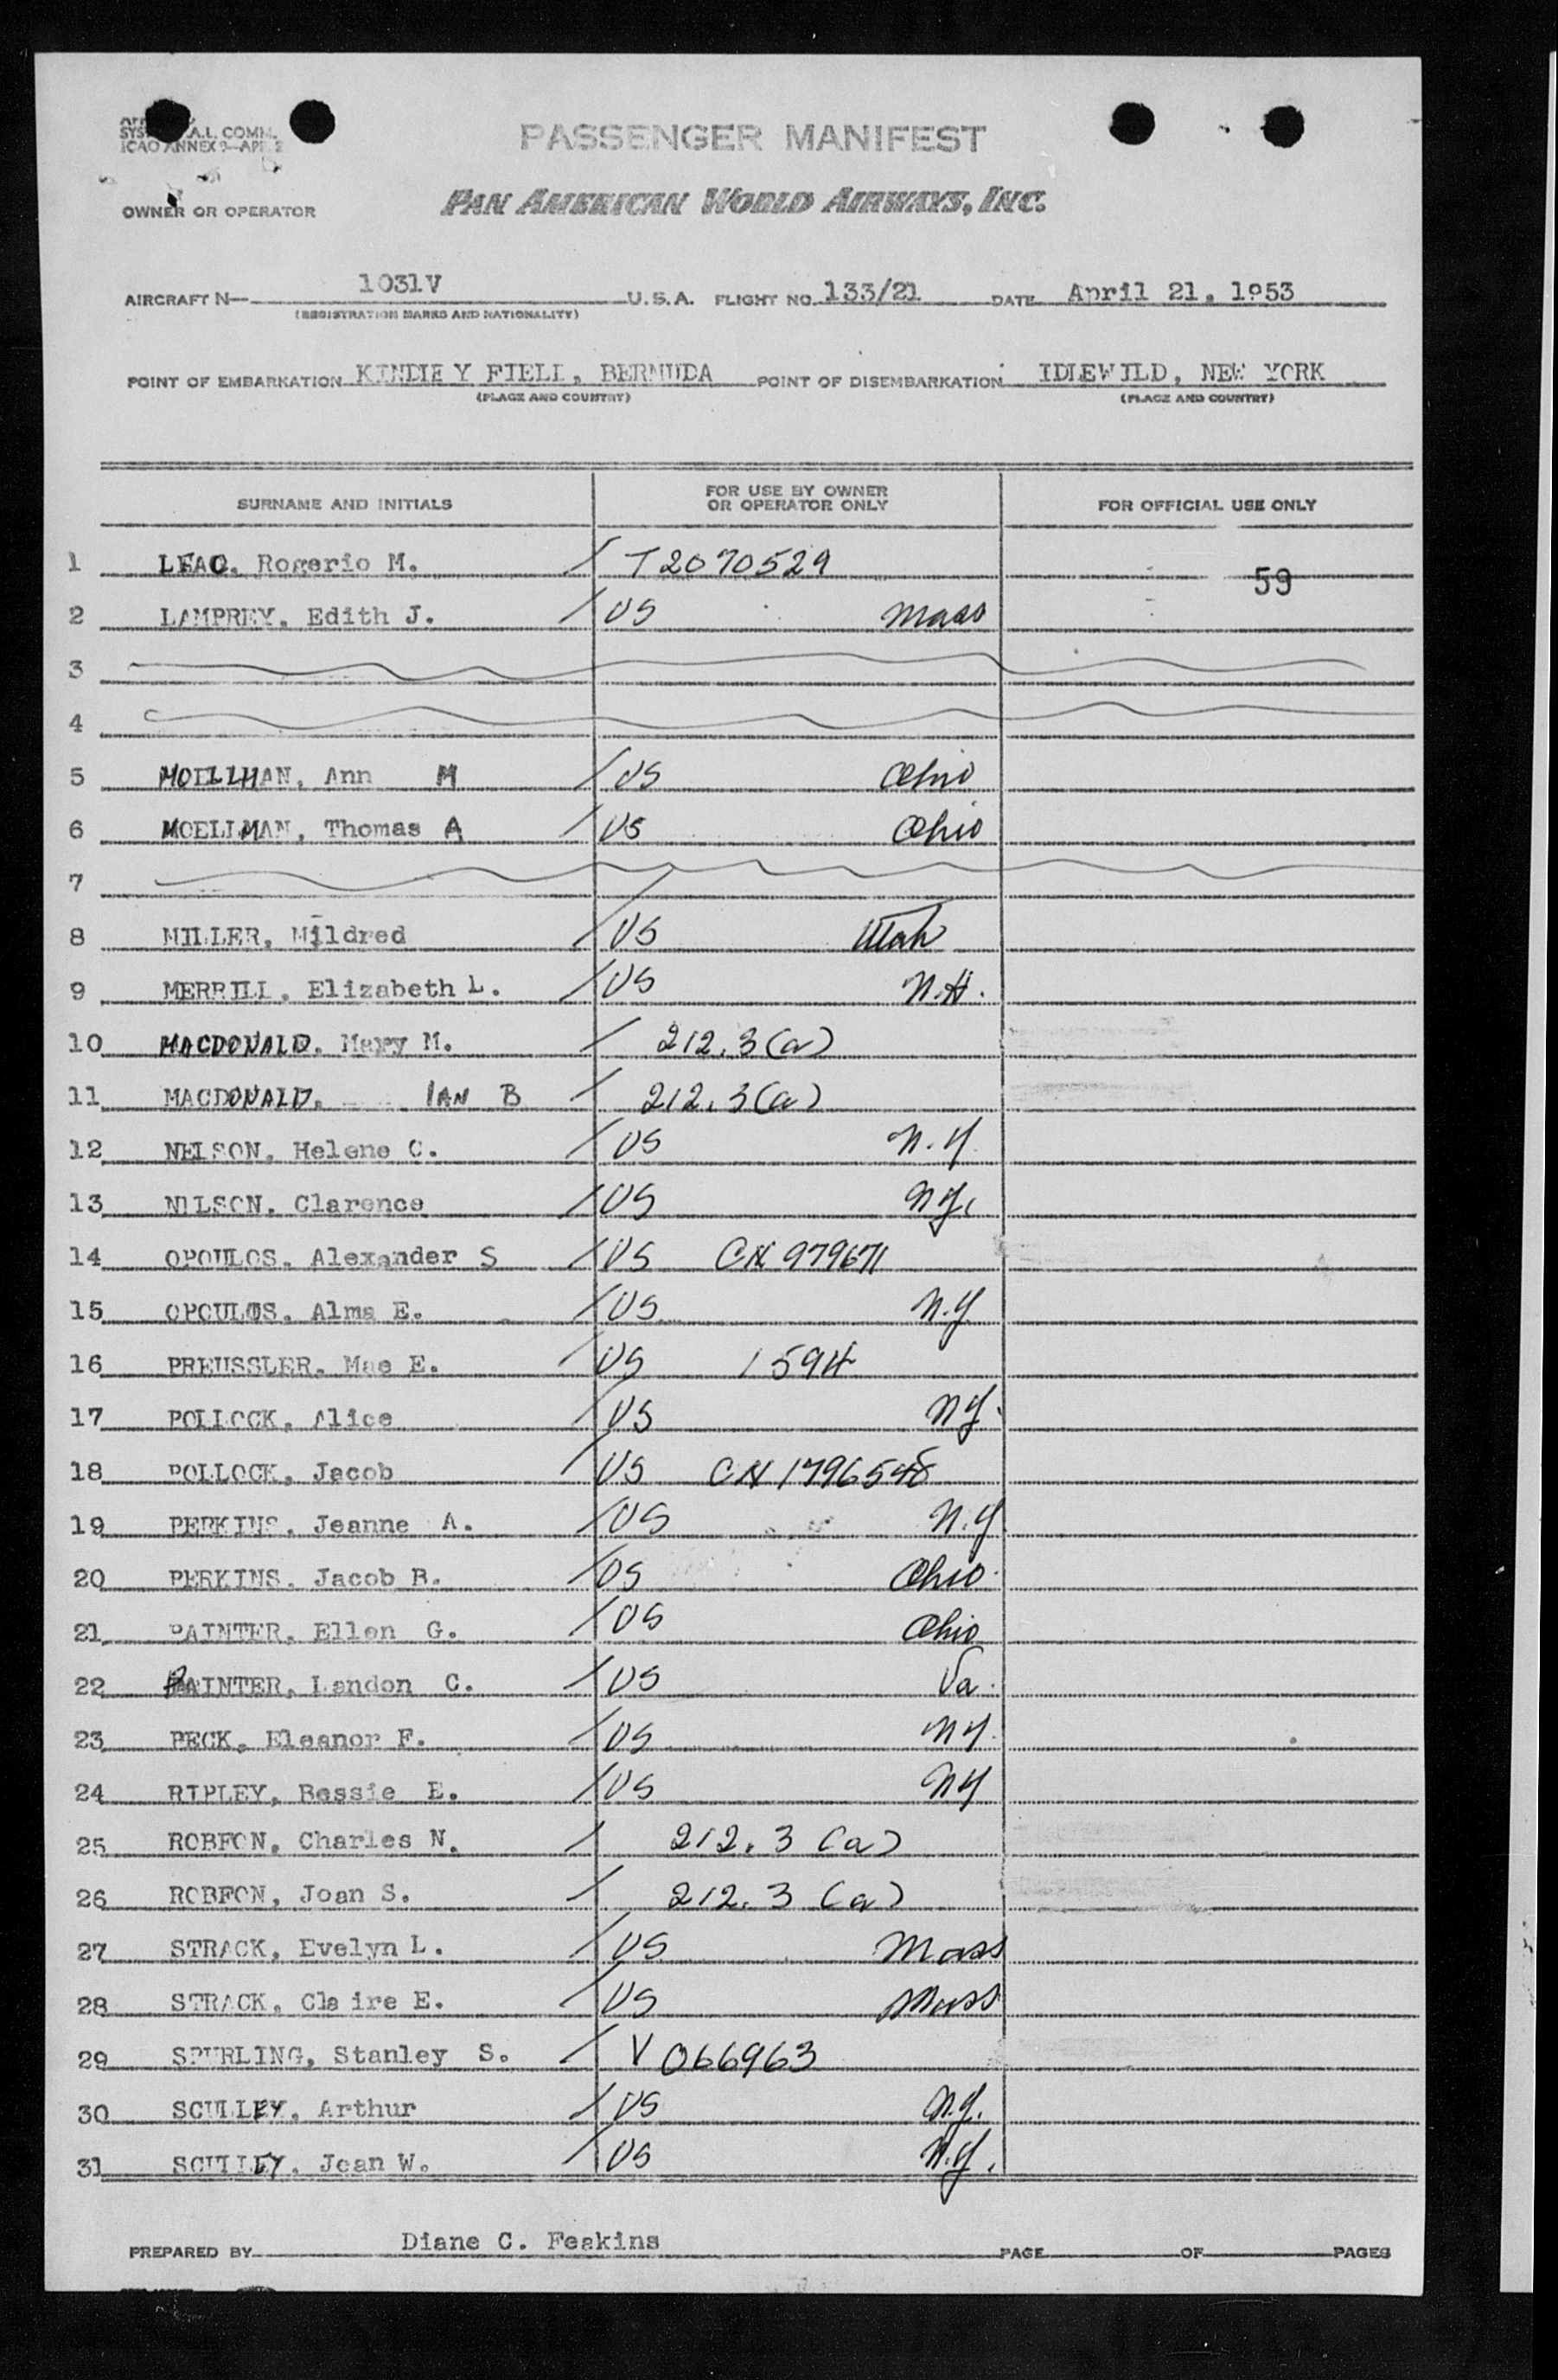 SYS A.I. COMM.
ICAO ANNEX 9—APR. 2
PASSENGER MANIFEST
OWNER OR OPERATOR PAN AMERICAN WORLD AIRWAYS, INC.
AIRCRAFT N— 1031V U.S.A. FLIGHT NO. 133/21 DATE April 21, 1953
(REGISTRATION MARKS AND NATIONALITY)
POINT OF EMBARKATION KINDLEY FIELD, BERMUDA POINT OF DISEMBARKATION IDLEWILD, NEW YORK
(PLACE AND COUNTRY) (PLACE AND COUNTRY)
SURNAME AND INITIALS FOR USE BY OWNER OR OPERATOR ONLY FOR OFFICIAL USE ONLY
1 LEAO, Rogerio M. / T2070529 59
2 LAMPREY, Edith J. / US Mass
3
4
5 MOELLMAN, Ann M / US Ohio
6 MOELLMAN, Thomas A / US Ohio
7
8 MILLER, Mildred / US Utah
9 MERRILL, Elizabeth L. / US N.H.
10 MACDONALD, Mary M. / 212.3(a)
11 MACDONALD, IAN B / 212.3(a)
12 NELSON, Helene C. / US N.Y.
13 NILSON, Clarence / US N.Y.
14 OPOULOS, Alexander S / US CN 979671
15 OPOULOS, Alma E. / US N.Y.
16 PREUSSLER, Mae E. / US 1594
17 POLLOCK, Alice / US NY.
18 POLLOCK, Jacob / US CN 1796548
19 PERKINS, Jeanne A. / US N.Y
20 PERKINS, Jacob B. / US Ohio.
21 PAINTER, Ellen G. / US Ohio
22 PAINTER, Landon C. / US Va.
23 PECK, Eleanor F. / US NY.
24 RIPLEY, Bessie E. / US NY
25 ROBFON, Charles N. / 212.3 (a)
26 ROBFON, Joan S. / 212.3 (a)
27 STRACK, Evelyn L. / US Mass
28 STRACK, Claire E. / US Mass
29 SPURLING, Stanley S. / V 066963
30 SCULLEY, Arthur / US N.Y.
31 SCULLEY, Jean W. / US N.Y.
PREPARED BY Diane C. Feakins PAGE OF PAGES